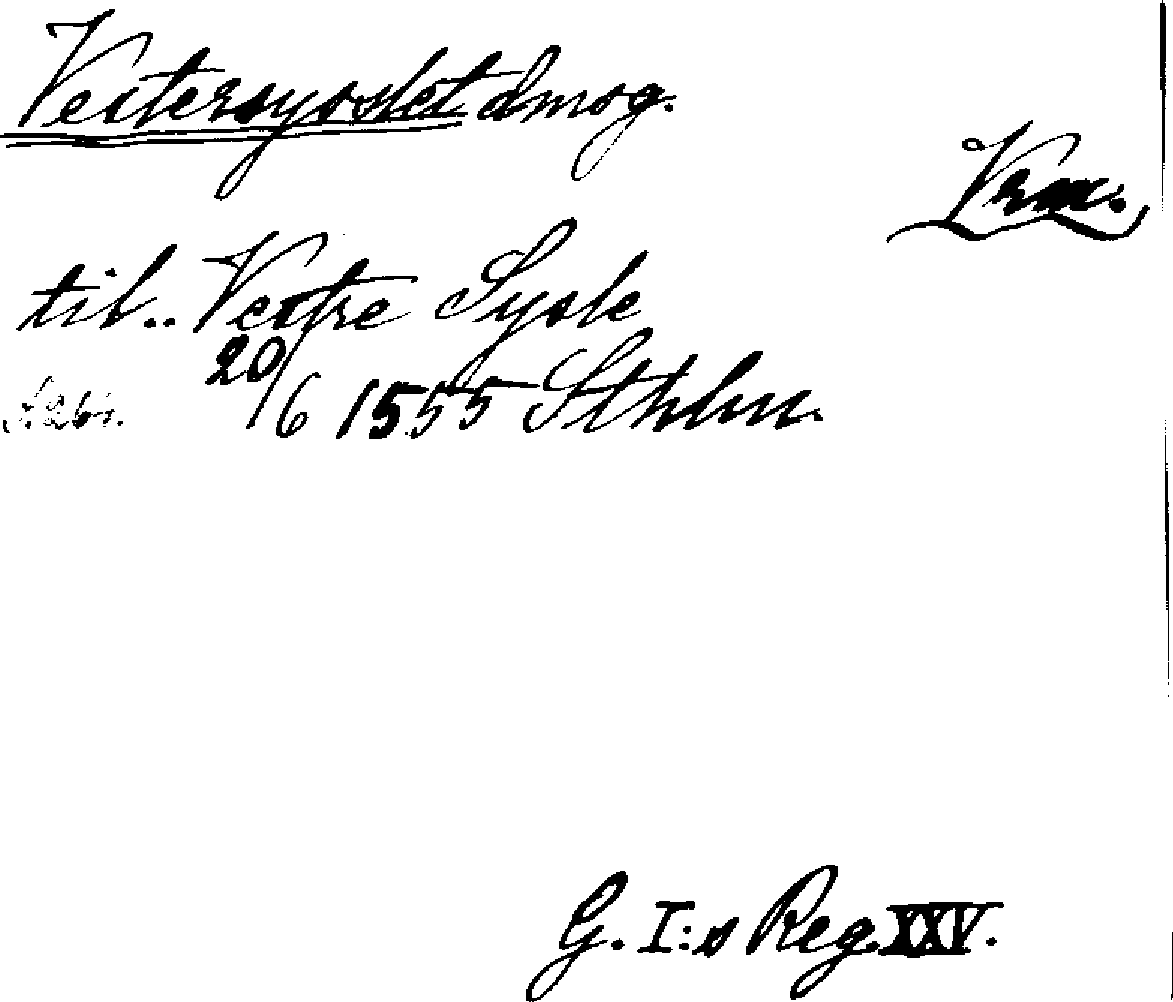 Vestersysslet dmog.
Vrm.
til.. Vestre Sysle
20/6 1555 Sthlm.
G. I:s Reg. XXV.